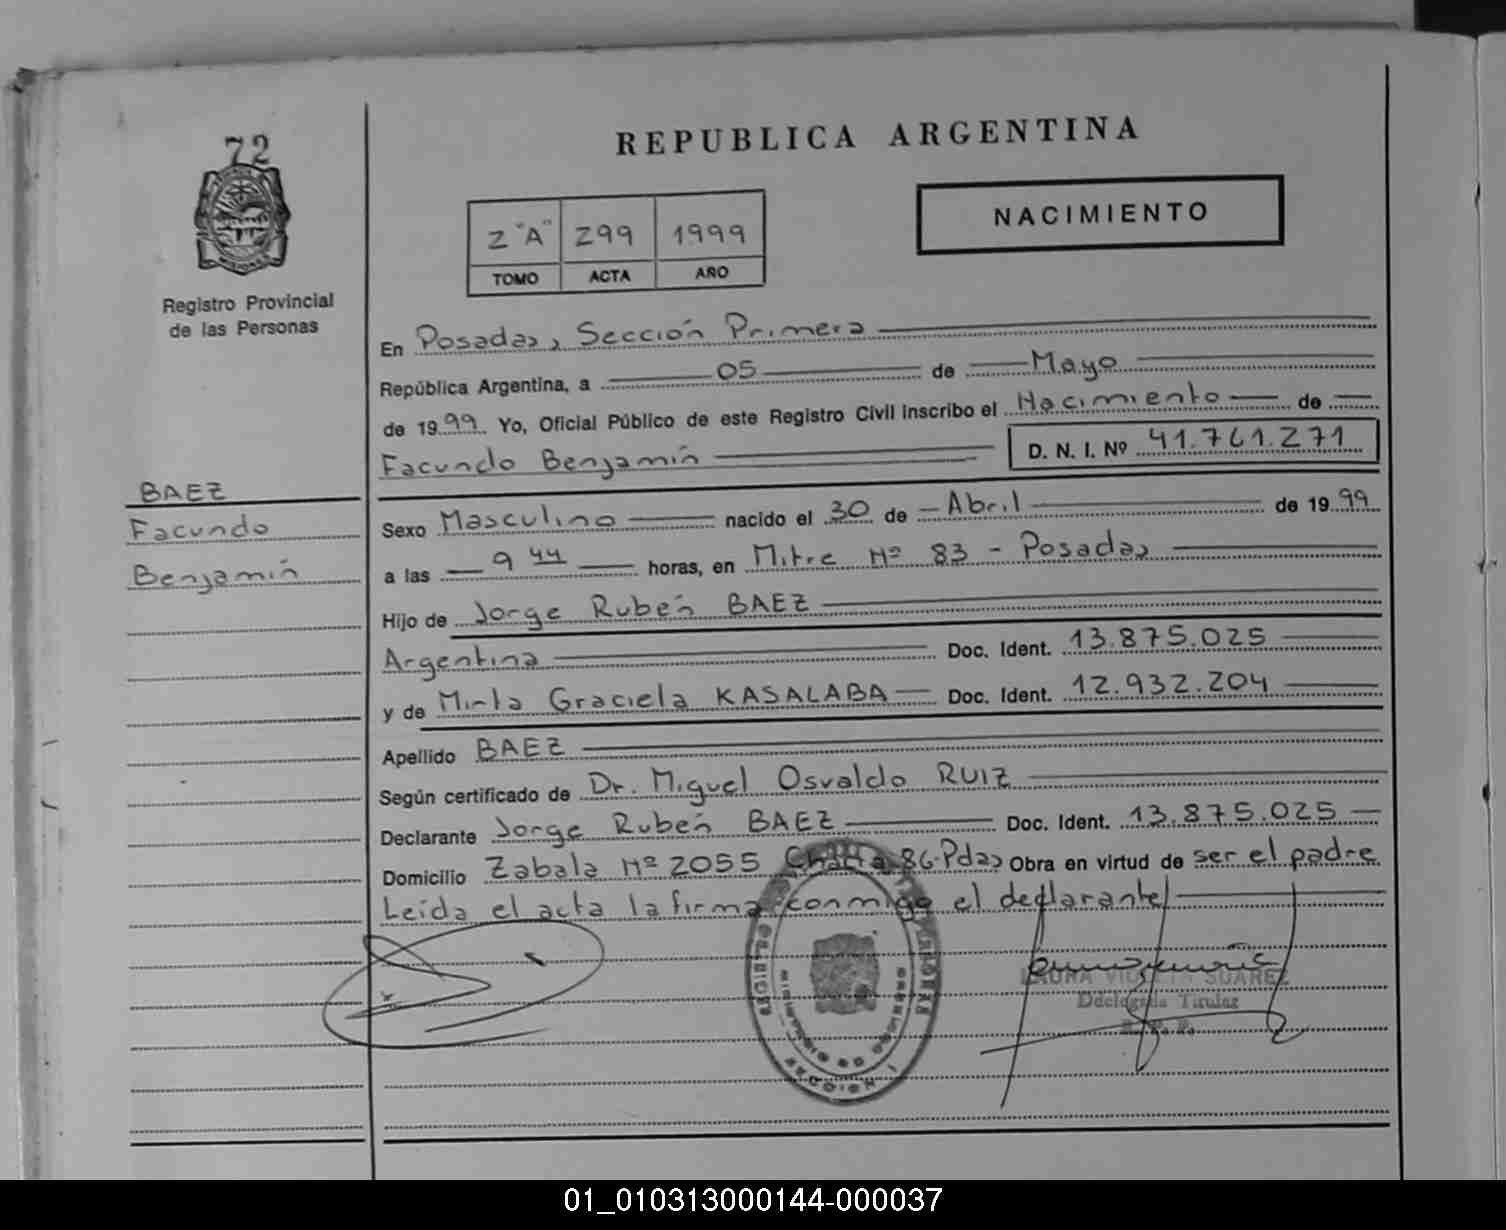 72
Registro Provincial
de las Personas
REPUBLICA ARGENTINA
NACIMIENTO
2 "A" 299 1999
TOMO ACTA AÑO
En Posadas, Sección Primera
República Argentina, a 05 de Mayo
de 1999 Yo, Oficial Público de este Registro Civil inscribo el Nacimiento de
Facundo Benjamín D. N. I. Nº 41.761.271
BAEZ
Facundo
Benjamín
Sexo Masculino nacido el 30 de Abril de 1999
a las 9 44 horas, en Mitre Nº 83 - Posadas
Hijo de Jorge Rubén BAEZ
Argentina Doc. Ident. 13.875.025
y de Mirta Graciela KASALABA Doc. Ident. 12.932.204
Apellido BAEZ
Según certificado de Dr. Miguel Osvaldo RUIZ
Declarante Jorge Rubén BAEZ Doc. Ident. 13.875.025
Domicilio Zabala Nº 2055 Chacra 86-Pdas Obra en virtud de ser el padre
Leída el acta la firma conmigo el declarante
LAURA SUAREZ
Delegada Titular
R. P. P.
SECCION 1
01_010313000144-000037